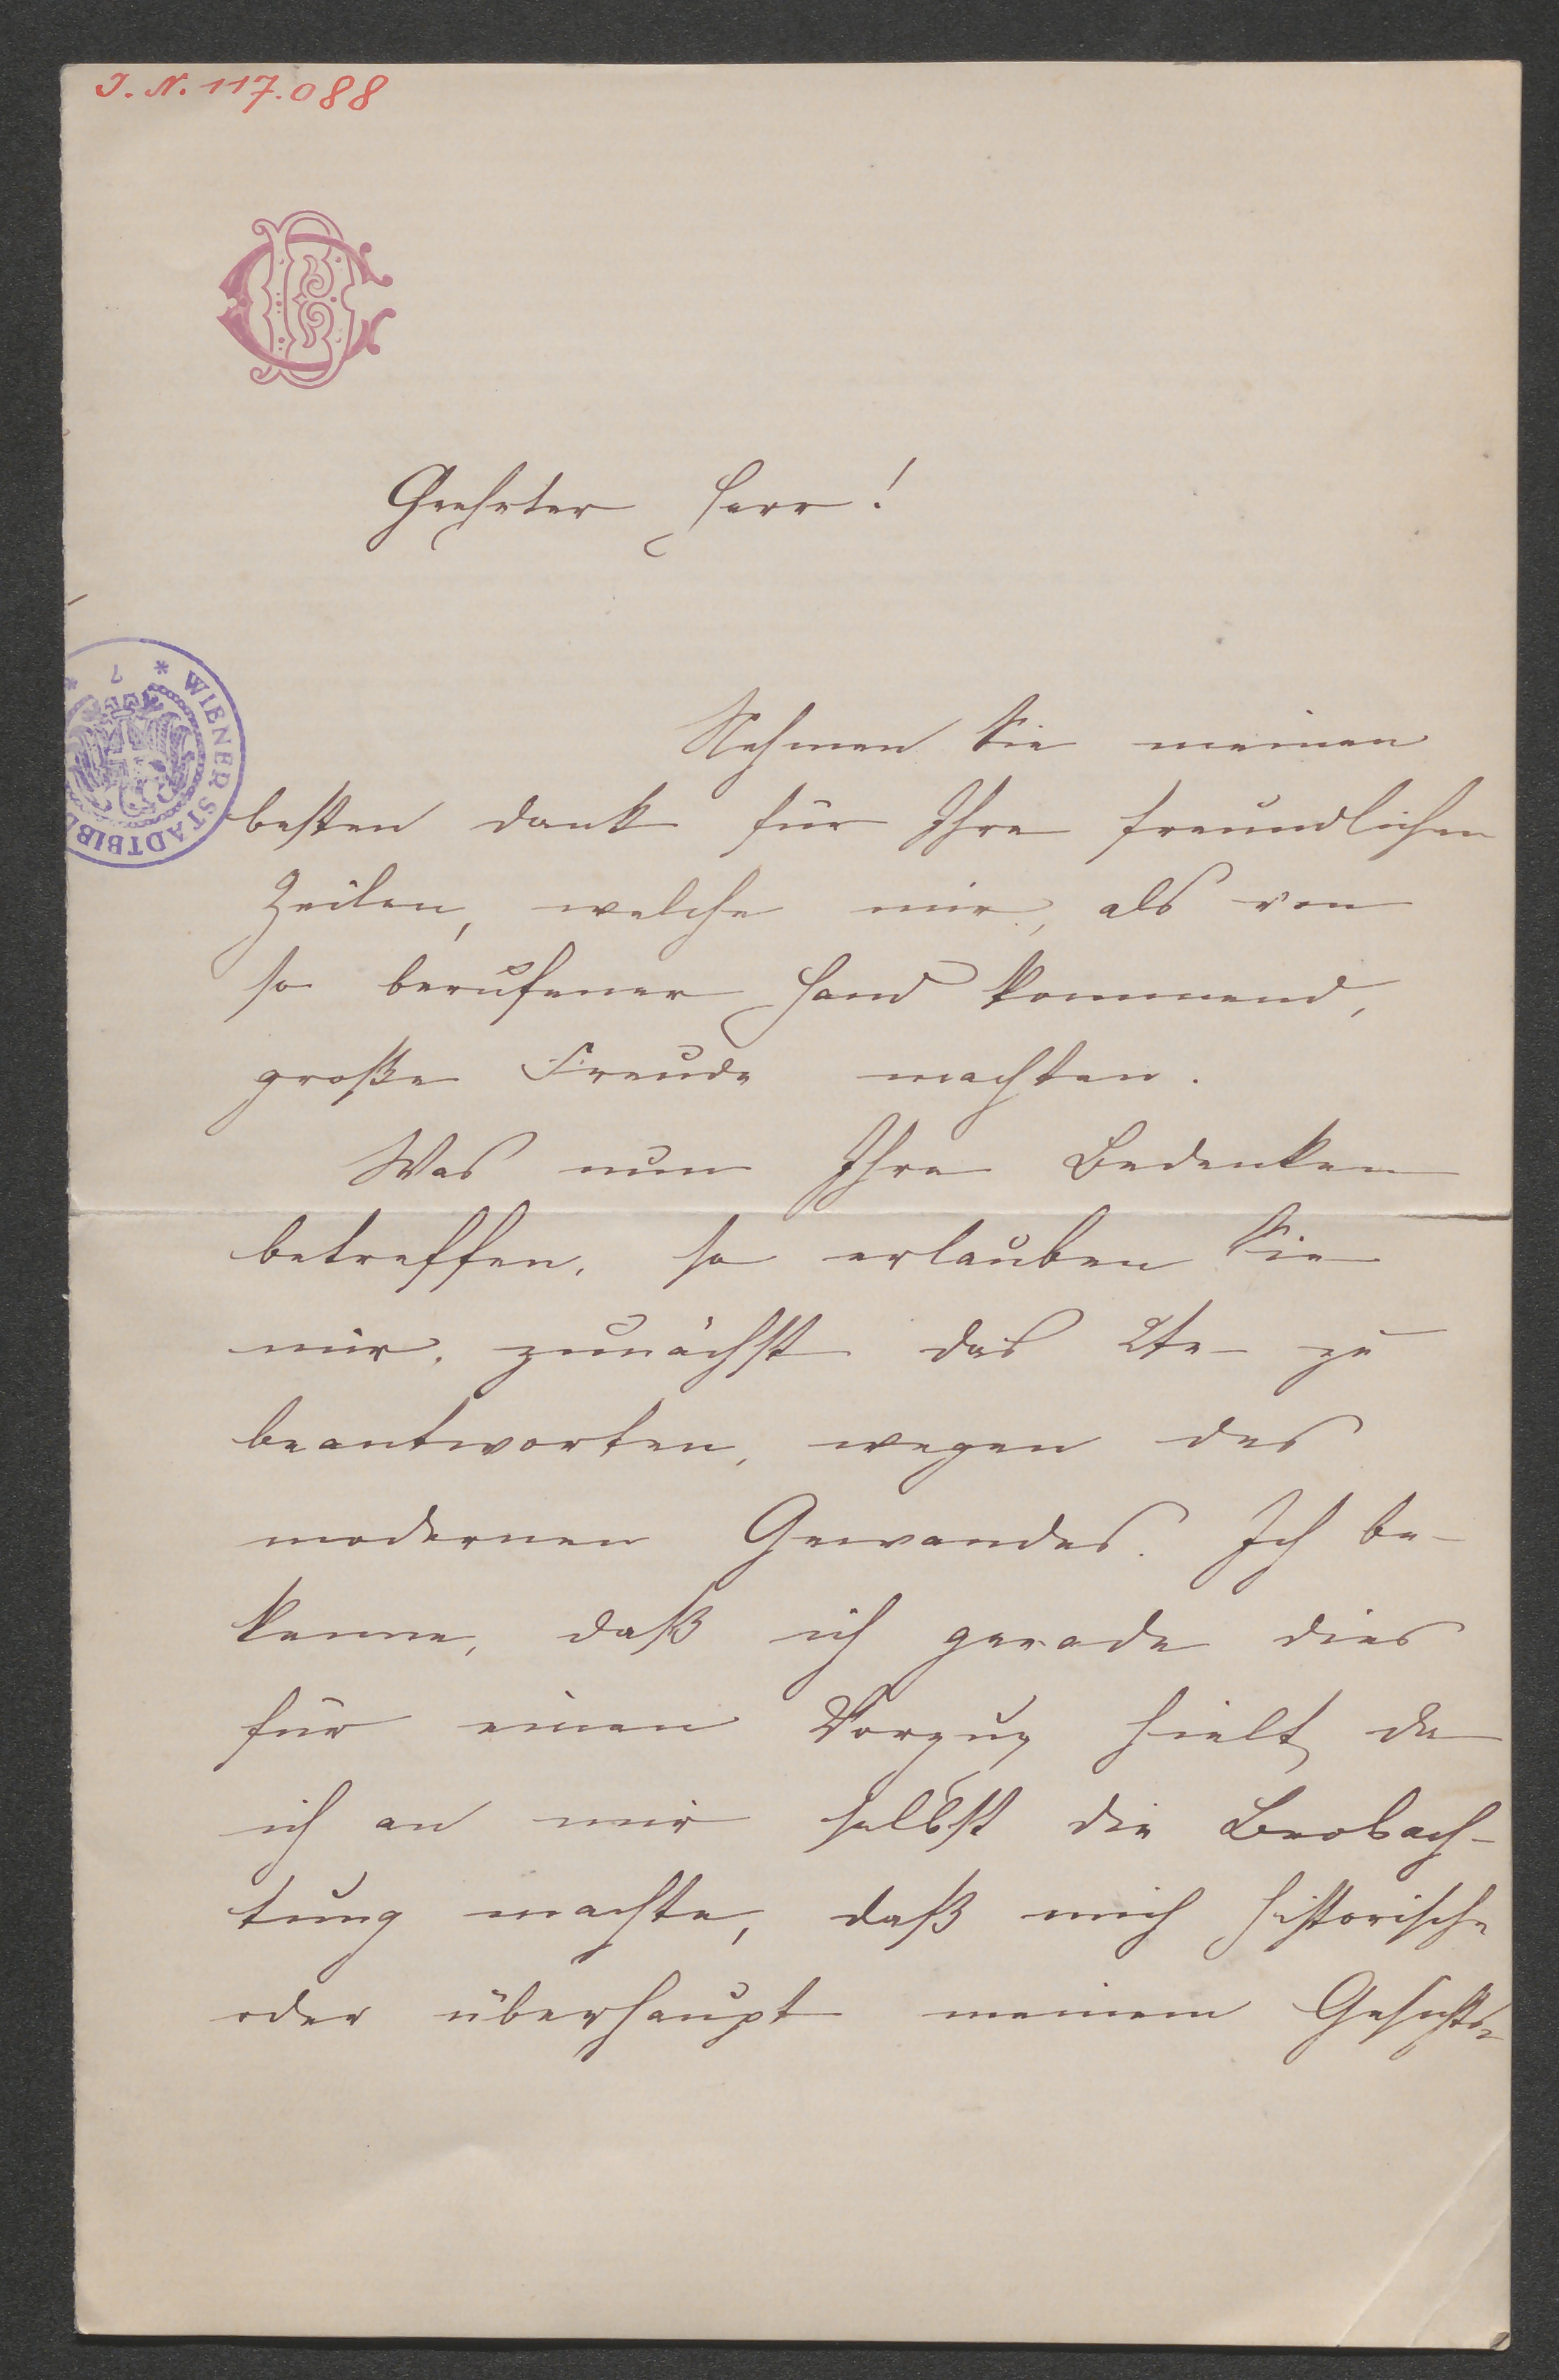 J. N. 117.088
Geehrter Herr!
Nehmen Sie meinen
besten Dank für Ihre freundlichen
Zeilen, welche mir, als von
so berufener Hand kommend,
große Freude machten.
Was nun Ihre Bedenken
betreffen, so erlauben Sie
mir, zunächst das 2te zu
beantworten, wegen des
modernen Gewandes. Ich be-
kenne, daß ich gerade dies
für einen Vorzug hielt, da
ich an mir selbst die Beobach-
tung machte, daß mich historische
oder überhaupt meinem Gesichts-
* WIENER STADTBIB
7